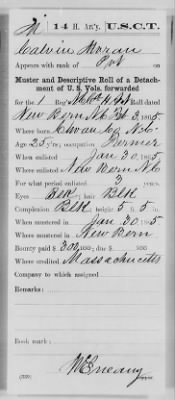 H | 14 H. Art'y. | U.S.C.T.
Calvin Horan
Appears with rank of Pvt
Muster and Descriptive Roll of a Detach-
ment of U. S. Vols. forwarded
for the 1 Reg't Roll dated
New Bern N.C. 3, 1865.
Where born Chowan Co N.C.
Age 25 y'rs; occupation Farmer
When enlisted Jan 30, 1865
Where enlisted New Bern N.C.
For what period enlisted 3 years.
Eyes Blk; hair Blk
Complexion Blk height 5 ft. 5 in.
When mustered in Jan 30, 1865
Where mustered in New Bern
Bounty paid $ 300/100; due $ /100
Where credited Massachusetts
Company to which assigned
Remarks:
Book mark:
Copyist.